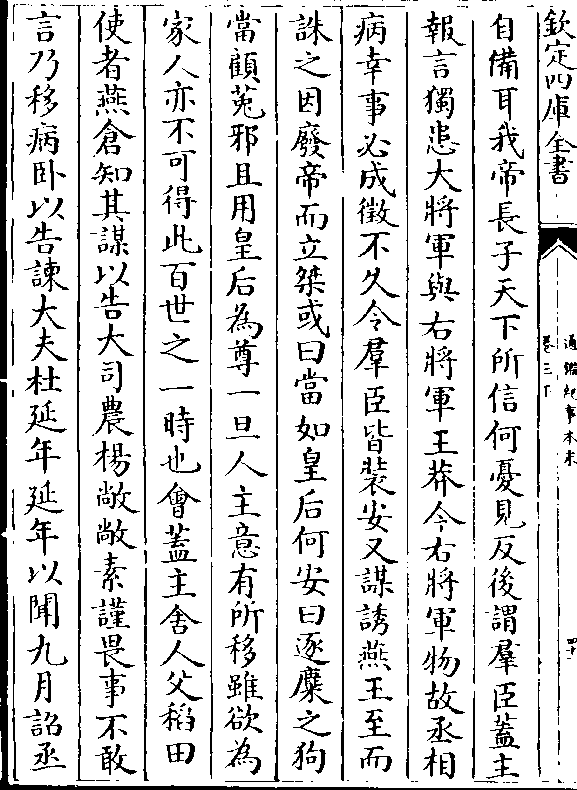 欽定四庫全書
通鑑紀事本末
卷三下
四十
自備耳我帝長子天下所信何憂見反後謂羣臣蓋主
報言獨患大將軍與右將軍王莽今右將軍物故丞相
病幸事必成徵不久令羣臣皆裝安又謀誘燕王至而
誅之因廢帝而立桀或曰當如皇后何安曰逐麋之狗
當顧菟邪且用皇后為尊一旦人主意有所移雖欲為
家人亦不可得此百世之一時也會蓋主舍人父稻田
使者燕倉知其謀以告大司農楊敞敞素謹畏事不敢
言乃移病卧以告諫大夫杜延年延年以聞九月詔丞